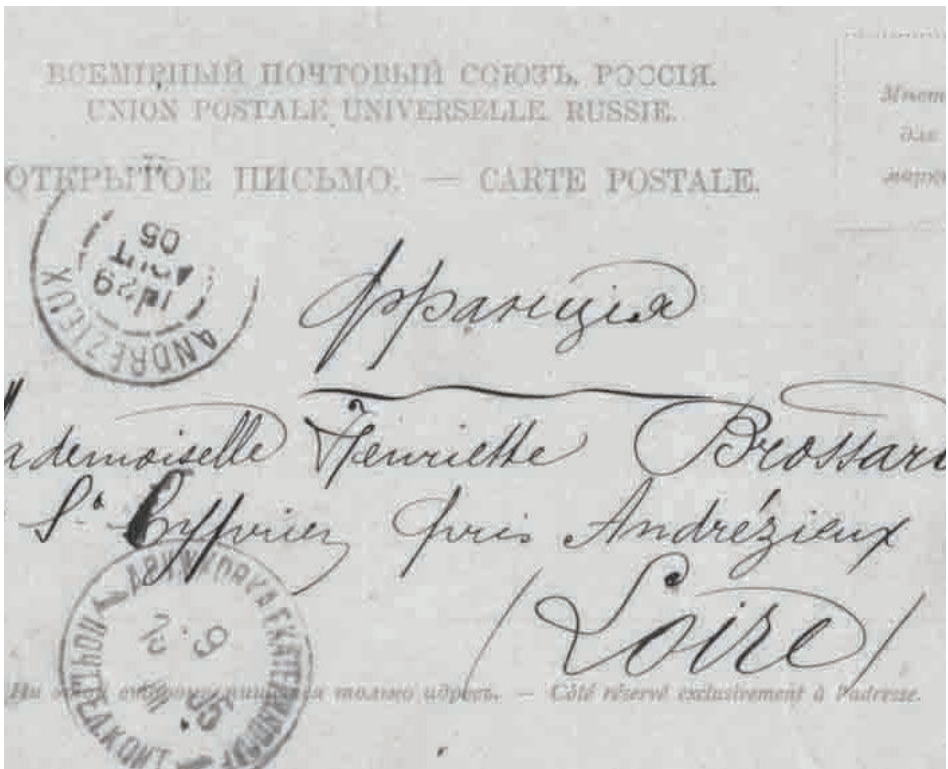 ВСЕМІРНЫЙ ПОЧТОВЫЙ СОЮЗЪ. РОССІЯ.
UNION POSTALE UNIVERSELLE. RUSSIE.
ОТКРЫТОЕ ПИСЬМО. — CARTE POSTALE.
Мѣсто
для
марки
ANDREZIEUX
29
AOUT
05
Франція
Mademoiselle Henriette Brossard
St Cyprien près Andrézieux
(Loire)
На этой сторонѣ пишется только адресъ. — Côté réservé exclusivement à l'adresse.